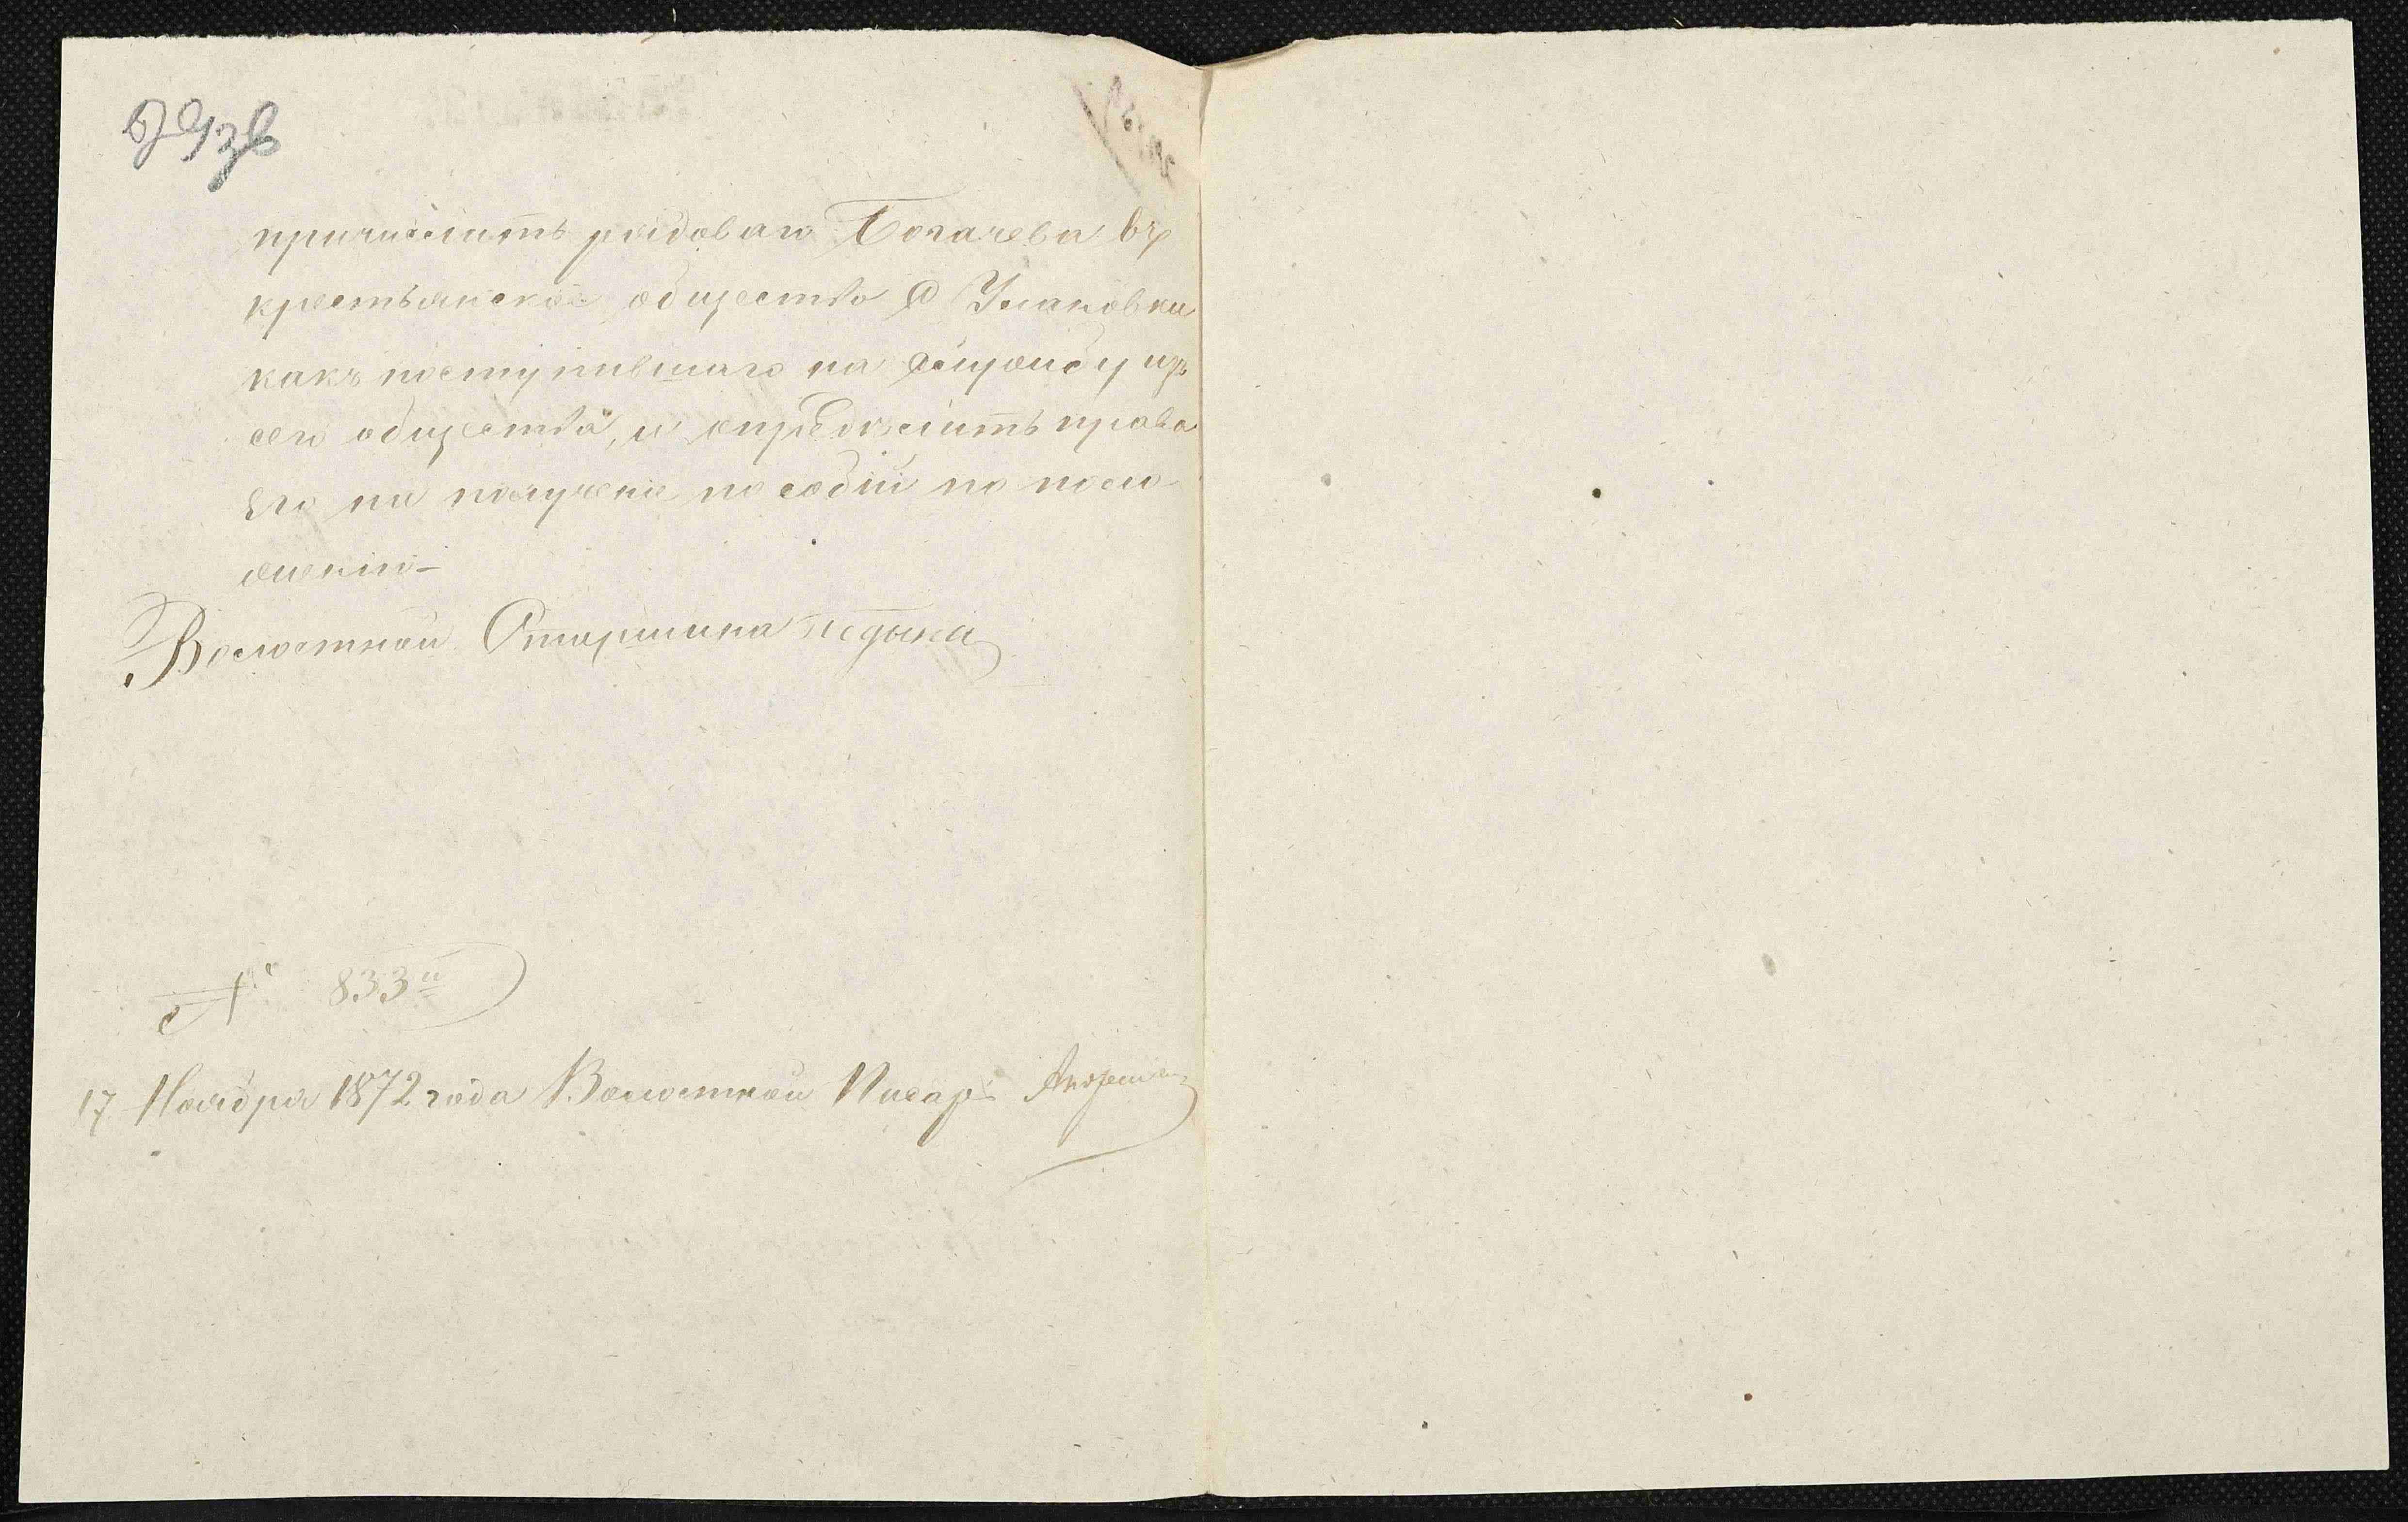 причислить рядоваго Богачева въ
крестьянское общество с Улановки
какъ поступившаго на службу изъ
сего общества, и определить права
Его на получение пособiй по поло
женiю-
Волостной Старшина
№ 833й
17 Ноября 1872 года Волостной Писарь